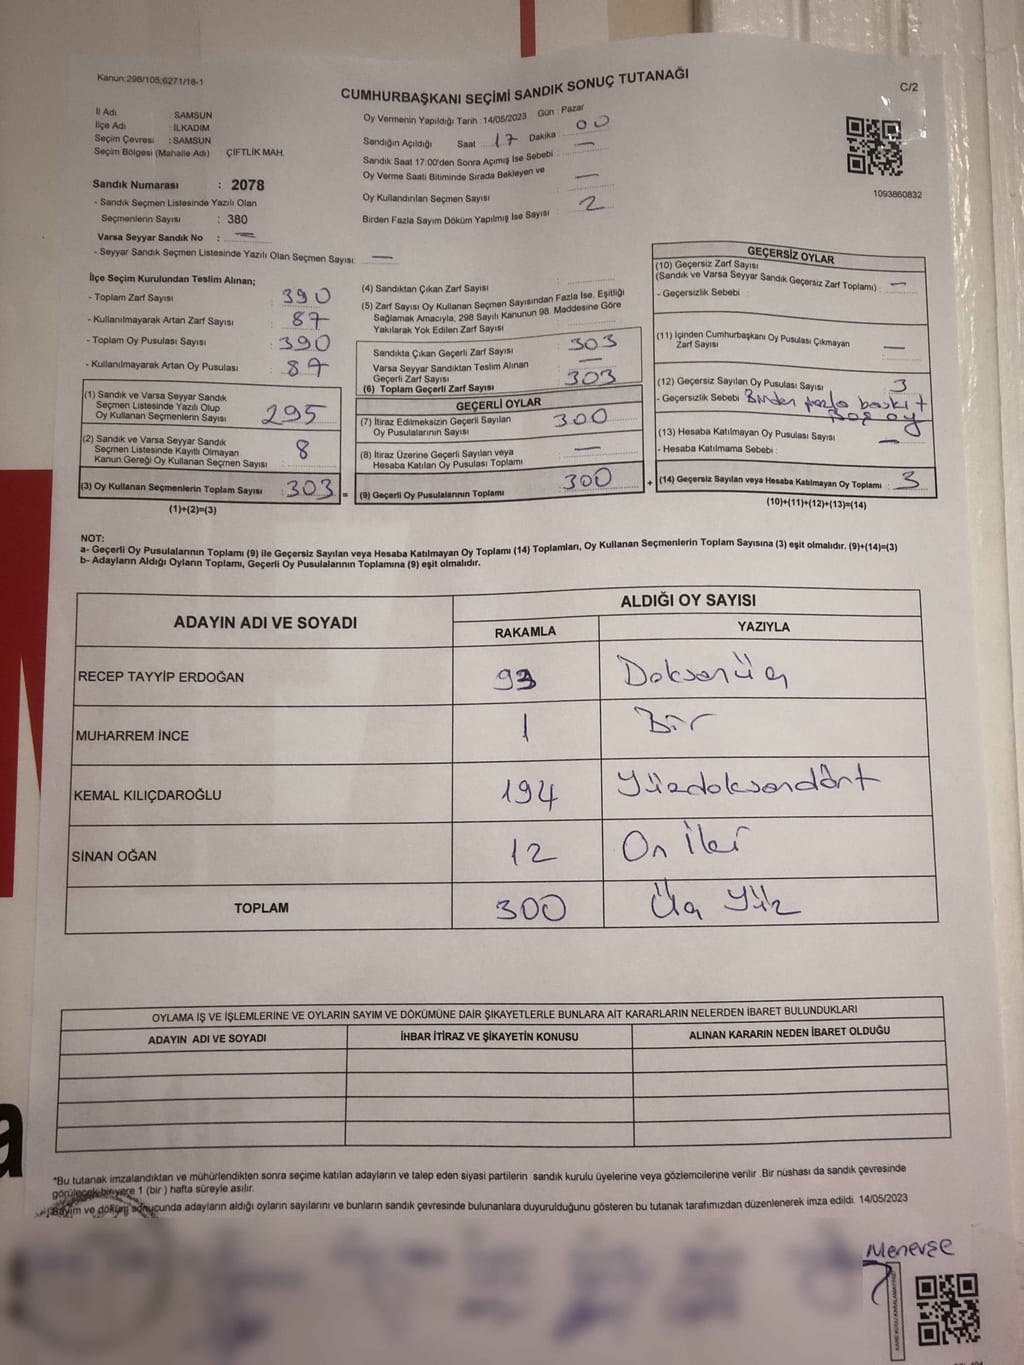 Kanun:298/105,6271/18-1
CUMHURBAŞKANI SEÇİMİ SANDIK SONUÇ TUTANAĞI
C/2
İl Adı : SAMSUN
İlçe Adı : İLKADIM
Seçim Çevresi : SAMSUN
Seçim Bölgesi (Mahalle Adı) ÇİFTLİK MAH.
Sandık Numarası : 2078
- Sandık Seçmen Listesinde Yazılı Olan
Seçmenlerin Sayısı : 380
Varsa Seyyar Sandık No : —
- Seyyar Sandık Seçmen Listesinde Yazılı Olan Seçmen Sayısı: —
Oy Vermenin Yapıldığı Tarih : 14/05/2023 Gün : Pazar
Sandığın Açıldığı Saat 17 Dakika : 00
Sandık Saat 17:00'den Sonra Açımış İse Sebebi : —
Oy Verme Saati Bitiminde Sırada Bekleyen ve
Oy Kullandırılan Seçmen Sayısı —
Birden Fazla Sayım Döküm Yapılmış İse Sayısı 2
1093860832
İlçe Seçim Kurulundan Teslim Alınan;
- Toplam Zarf Sayısı 390
- Kullanılmayarak Artan Zarf Sayısı 87
- Toplam Oy Pusulası Sayısı 390
- Kullanılmayarak Artan Oy Pusulası 87
(1) Sandık ve Varsa Seyyar Sandık
Seçmen Listesinde Yazılı Olup
Oy Kullanan Seçmenlerin Sayısı 295
(2) Sandık ve Varsa Seyyar Sandık
Seçmen Listesinde Kayıtlı Olmayan
Kanun Gereği Oy Kullanan Seçmen Sayısı 8
(3) Oy Kullanan Seçmenlerin Toplam Sayısı : 303 =
(1)+(2)=(3)
(4) Sandıktan Çıkan Zarf Sayısı
(5) Zarf Sayısı Oy Kullanan Seçmen Sayısından Fazla İse, Eşitliği
Sağlamak Amacıyla, 298 Sayılı Kanunun 98. Maddesine Göre
Yakılarak Yok Edilen Zarf Sayısı
Sandıkta Çıkan Geçerli Zarf Sayısı 303
Varsa Seyyar Sandıktan Teslim Alınan
Geçerli Zarf Sayısı —
(6) Toplam Geçerli Zarf Sayısı 303
GEÇERLİ OYLAR
(7) İtiraz Edilmeksizin Geçerli Sayılan
Oy Pusulalarının Sayısı 300
(8) İtiraz Üzerine Geçerli Sayılan veya
Hesaba Katılan Oy Pusulası Toplamı —
(9) Geçerli Oy Pusulalarının Toplamı 300 +
GEÇERSİZ OYLAR
(10) Geçersiz Zarf Sayısı
(Sandık ve Varsa Seyyar Sandık Geçersiz Zarf Toplamı) : —
- Geçersizlik Sebebi :
(11) İçinden Cumhurbaşkanı Oy Pusulası Çıkmayan
Zarf Sayısı —
(12) Geçersiz Sayılan Oy Pusulası Sayısı 3
- Geçersizlik Sebebi Birden fazla baskı +
Boş oy
(13) Hesaba Katılmayan Oy Pusulası Sayısı —
- Hesaba Katılmama Sebebi :
(14) Geçersiz Sayılan veya Hesaba Katılmayan Oy Toplamı : 3
(10)+(11)+(12)+(13)=(14)
NOT:
a- Geçerli Oy Pusulalarının Toplamı (9) ile Geçersiz Sayılan veya Hesaba Katılmayan Oy Toplamı (14) Toplamları, Oy Kullanan Seçmenlerin Toplam Sayısına (3) eşit olmalıdır. (9)+(14)=(3)
b- Adayların Aldığı Oyların Toplamı, Geçerli Oy Pusulalarının Toplamına (9) eşit olmalıdır.
ADAYIN ADI VE SOYADI
ALDIĞI OY SAYISI
RAKAMLA YAZIYLA
RECEP TAYYİP ERDOĞAN 93 Doksanüç
MUHARREM İNCE 1 Bir
KEMAL KILIÇDAROĞLU 194 Yüzdoksandört
SİNAN OĞAN 12 On iki
TOPLAM 300 Üç Yüz
OYLAMA İŞ VE İŞLEMLERİNE VE OYLARIN SAYIM VE DÖKÜMÜNE DAİR ŞİKAYETLERLE BUNLARA AİT KARARLARIN NELERDEN İBARET BULUNDUKLARI
ADAYIN ADI VE SOYADI İHBAR İTİRAZ VE ŞİKAYETİN KONUSU ALINAN KARARIN NEDEN İBARET OLDUĞU
*Bu tutanak imzalandıktan ve mühürlendikten sonra seçime katılan adayların ve talep eden siyasi partilerin sandık kurulu üyelerine veya gözlemcilerine verilir .Bir nüshası da sandık çevresinde
görülecek bir yere 1 (bir ) hafta süreyle asılır.
Sayım ve döküm sonucunda adayların aldığı oyların sayılarını ve bunların sandık çevresinde bulunanlara duyurulduğunu gösteren bu tutanak tarafımızdan düzenlenerek imza edildi. 14/05/2023
Menevşe